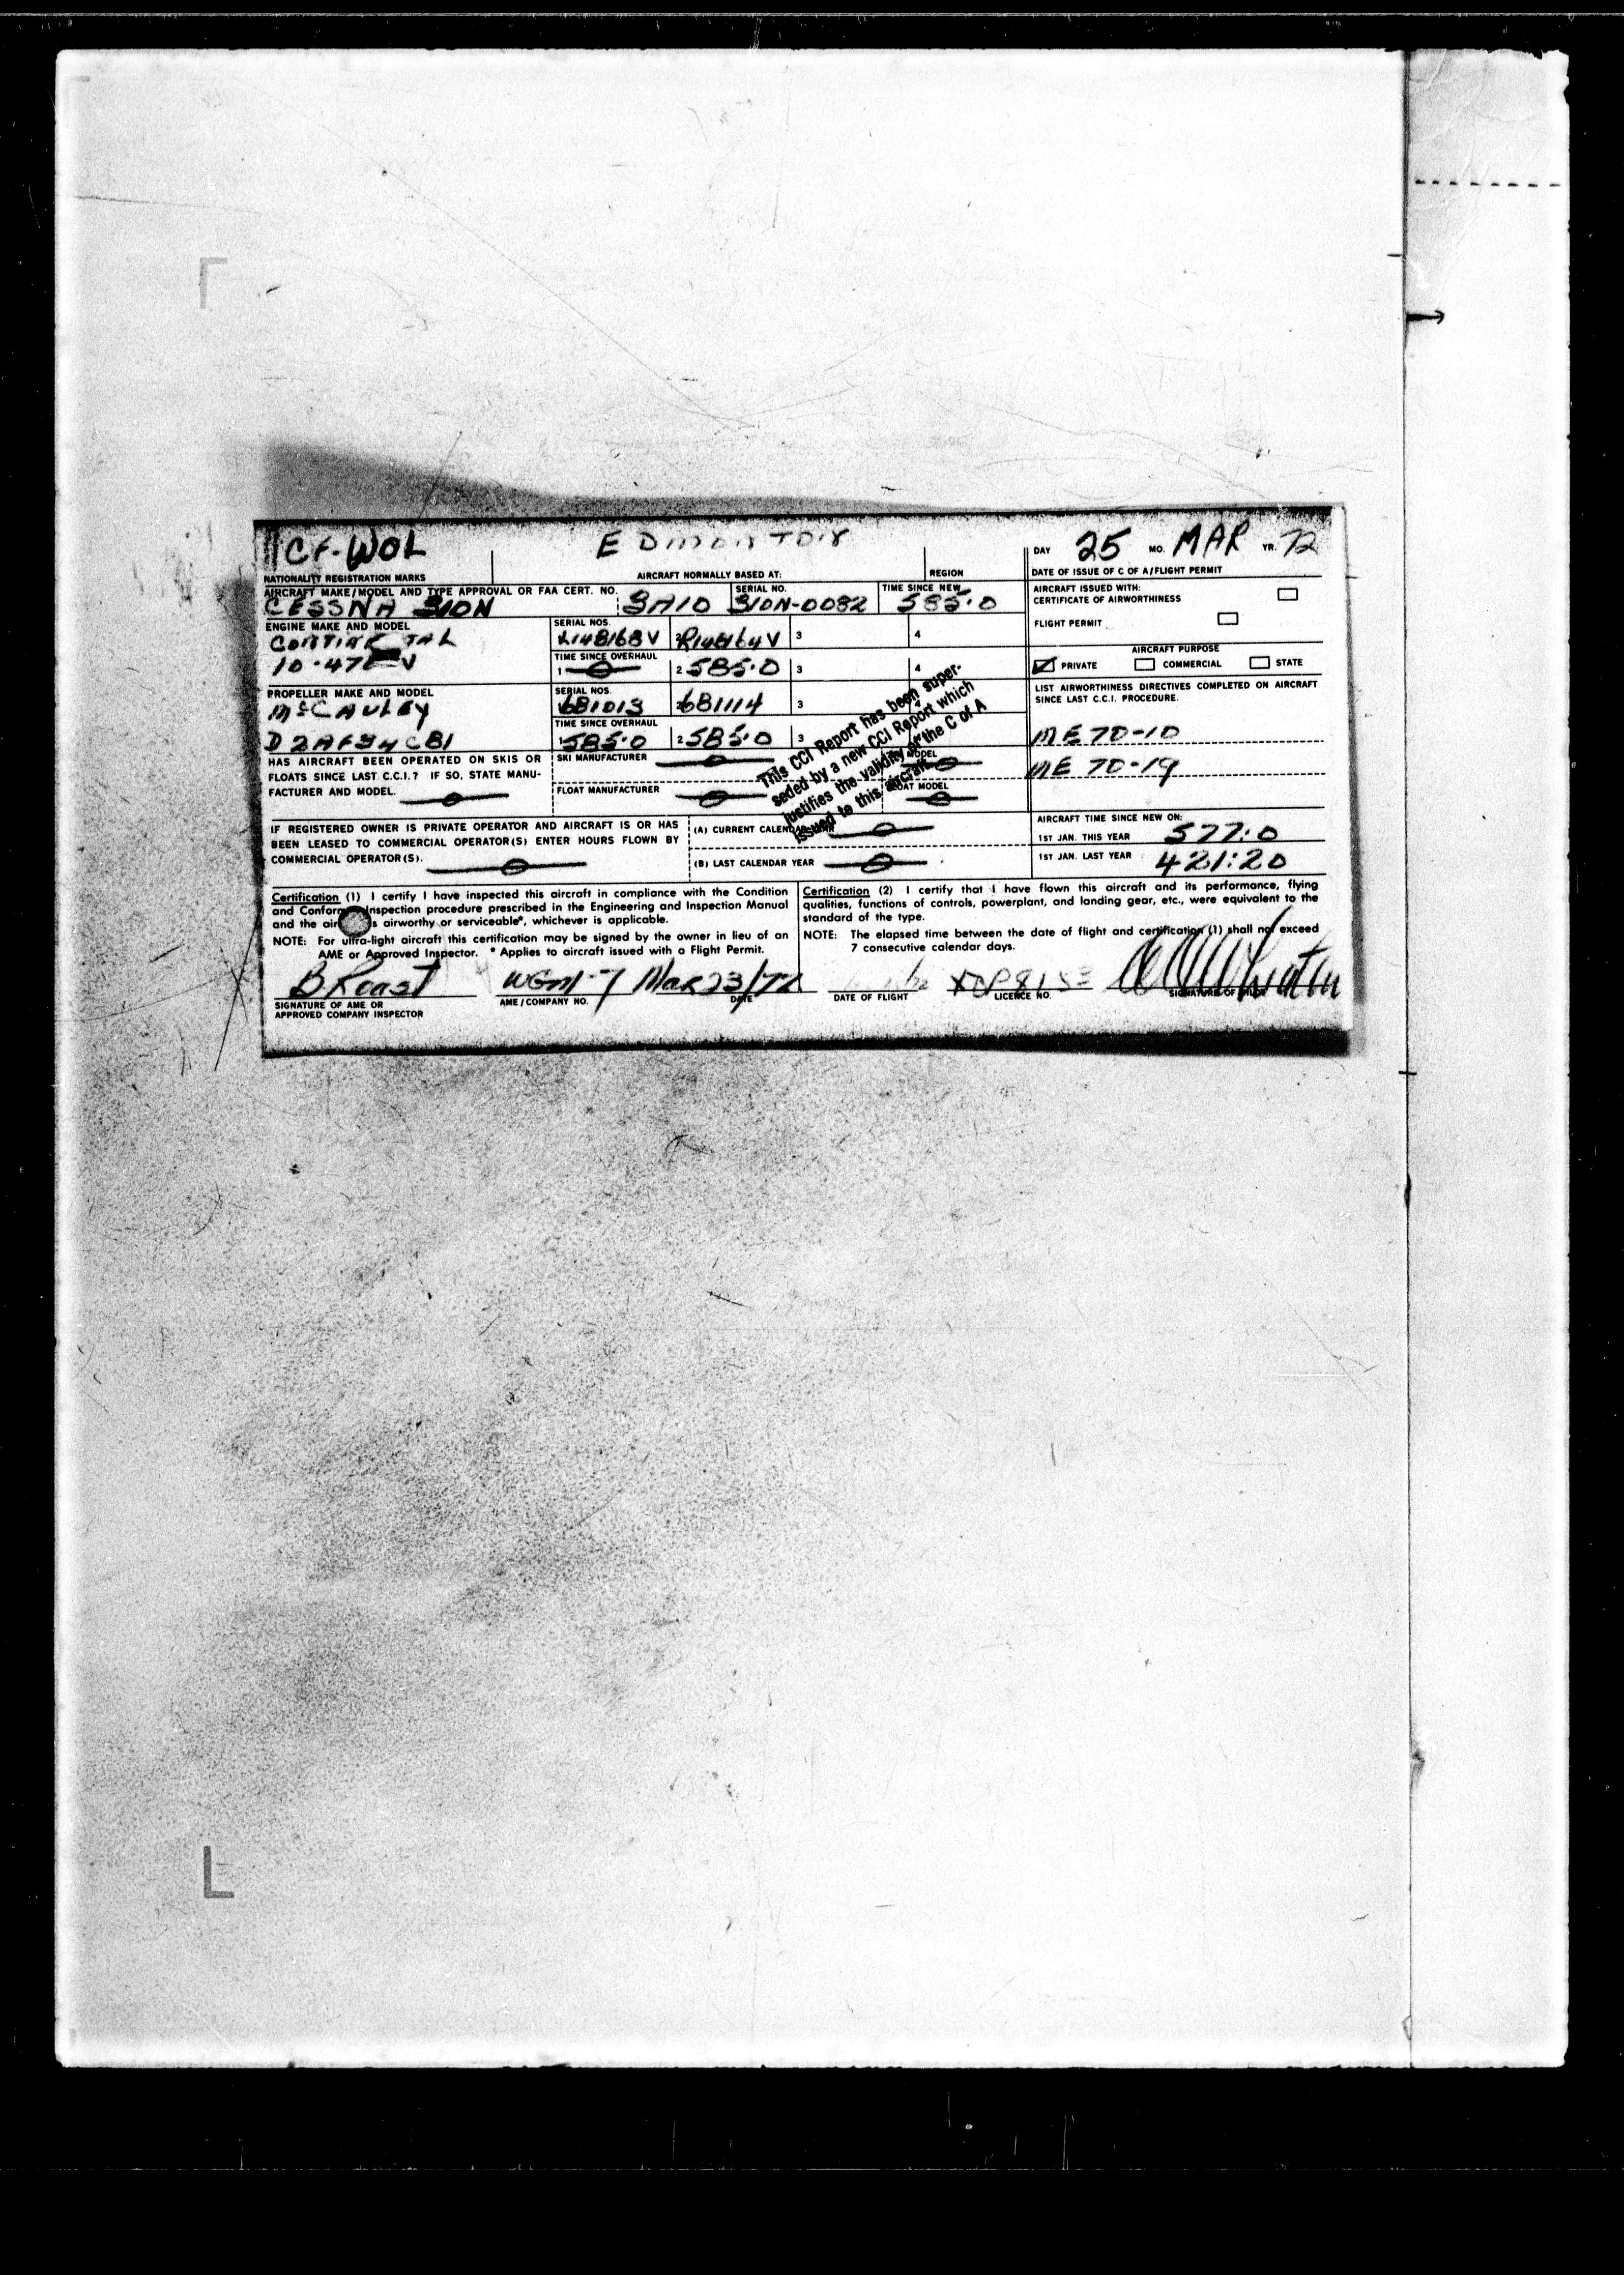 CF-WOL EDMONTON DAY 25 MO. MAR YR. 72
NATIONALITY REGISTRATION MARKS AIRCRAFT NORMALLY BASED AT: REGION DATE OF ISSUE OF C OF A/FLIGHT PERMIT
AIRCRAFT MAKE/MODEL AND TYPE APPROVAL OR FAA CERT. NO. SERIAL NO. TIME SINCE NEW
CESSNA 310N 3A10 310N-0082 585.0
AIRCRAFT ISSUED WITH:
CERTIFICATE OF AIRWORTHINESS
FLIGHT PERMIT
ENGINE MAKE AND MODEL SERIAL NOS.
CONTINENTAL 1 2 3 4
10-47 V TIME SINCE OVERHAUL
1 2 585.0 3 4
AIRCRAFT PURPOSE
PRIVATE COMMERCIAL STATE
PROPELLER MAKE AND MODEL SERIAL NOS.
McCAULEY 681013 2 681114 3
TIME SINCE OVERHAUL
D2AF34C81 1 585.0 2 585.0 3
LIST AIRWORTHINESS DIRECTIVES COMPLETED ON AIRCRAFT
SINCE LAST C.C.I. PROCEDURE.
ME 70-10
ME 70-19
This CCI Report has been super-
seded by a new CCI Report which
justifies the validity of the C of A
issued to this aircraft.
HAS AIRCRAFT BEEN OPERATED ON SKIS OR
FLOATS SINCE LAST C.C.I.? IF SO, STATE MANU-
FACTURER AND MODEL.
SKI MANUFACTURER MODEL
FLOAT MANUFACTURER FLOAT MODEL
IF REGISTERED OWNER IS PRIVATE OPERATOR AND AIRCRAFT IS OR HAS
BEEN LEASED TO COMMERCIAL OPERATOR(S) ENTER HOURS FLOWN BY
COMMERCIAL OPERATOR(S).
(A) CURRENT CALENDAR
(B) LAST CALENDAR YEAR
AIRCRAFT TIME SINCE NEW ON:
1ST JAN. THIS YEAR 577:0
1ST JAN. LAST YEAR 421:20
Certification (1) I certify I have inspected this aircraft in compliance with the Condition
and Conform Inspection procedure prescribed in the Engineering and Inspection Manual
and the air s airworthy or serviceable*, whichever is applicable.
NOTE: For ultra-light aircraft this certification may be signed by the owner in lieu of an
AME or Approved Inspector. * Applies to aircraft issued with a Flight Permit.
B Roast WGM-7 Mar 23/72
SIGNATURE OF AME OR AME/COMPANY NO. DATE
APPROVED COMPANY INSPECTOR
Certification (2) I certify that I have flown this aircraft and its performance, flying
qualities, functions of controls, powerplant, and landing gear, etc., were equivalent to the
standard of the type.
NOTE: The elapsed time between the date of flight and certification (1) shall not exceed
7 consecutive calendar days.
DATE OF FLIGHT LICENCE NO. SIGNATURE OF PILOT